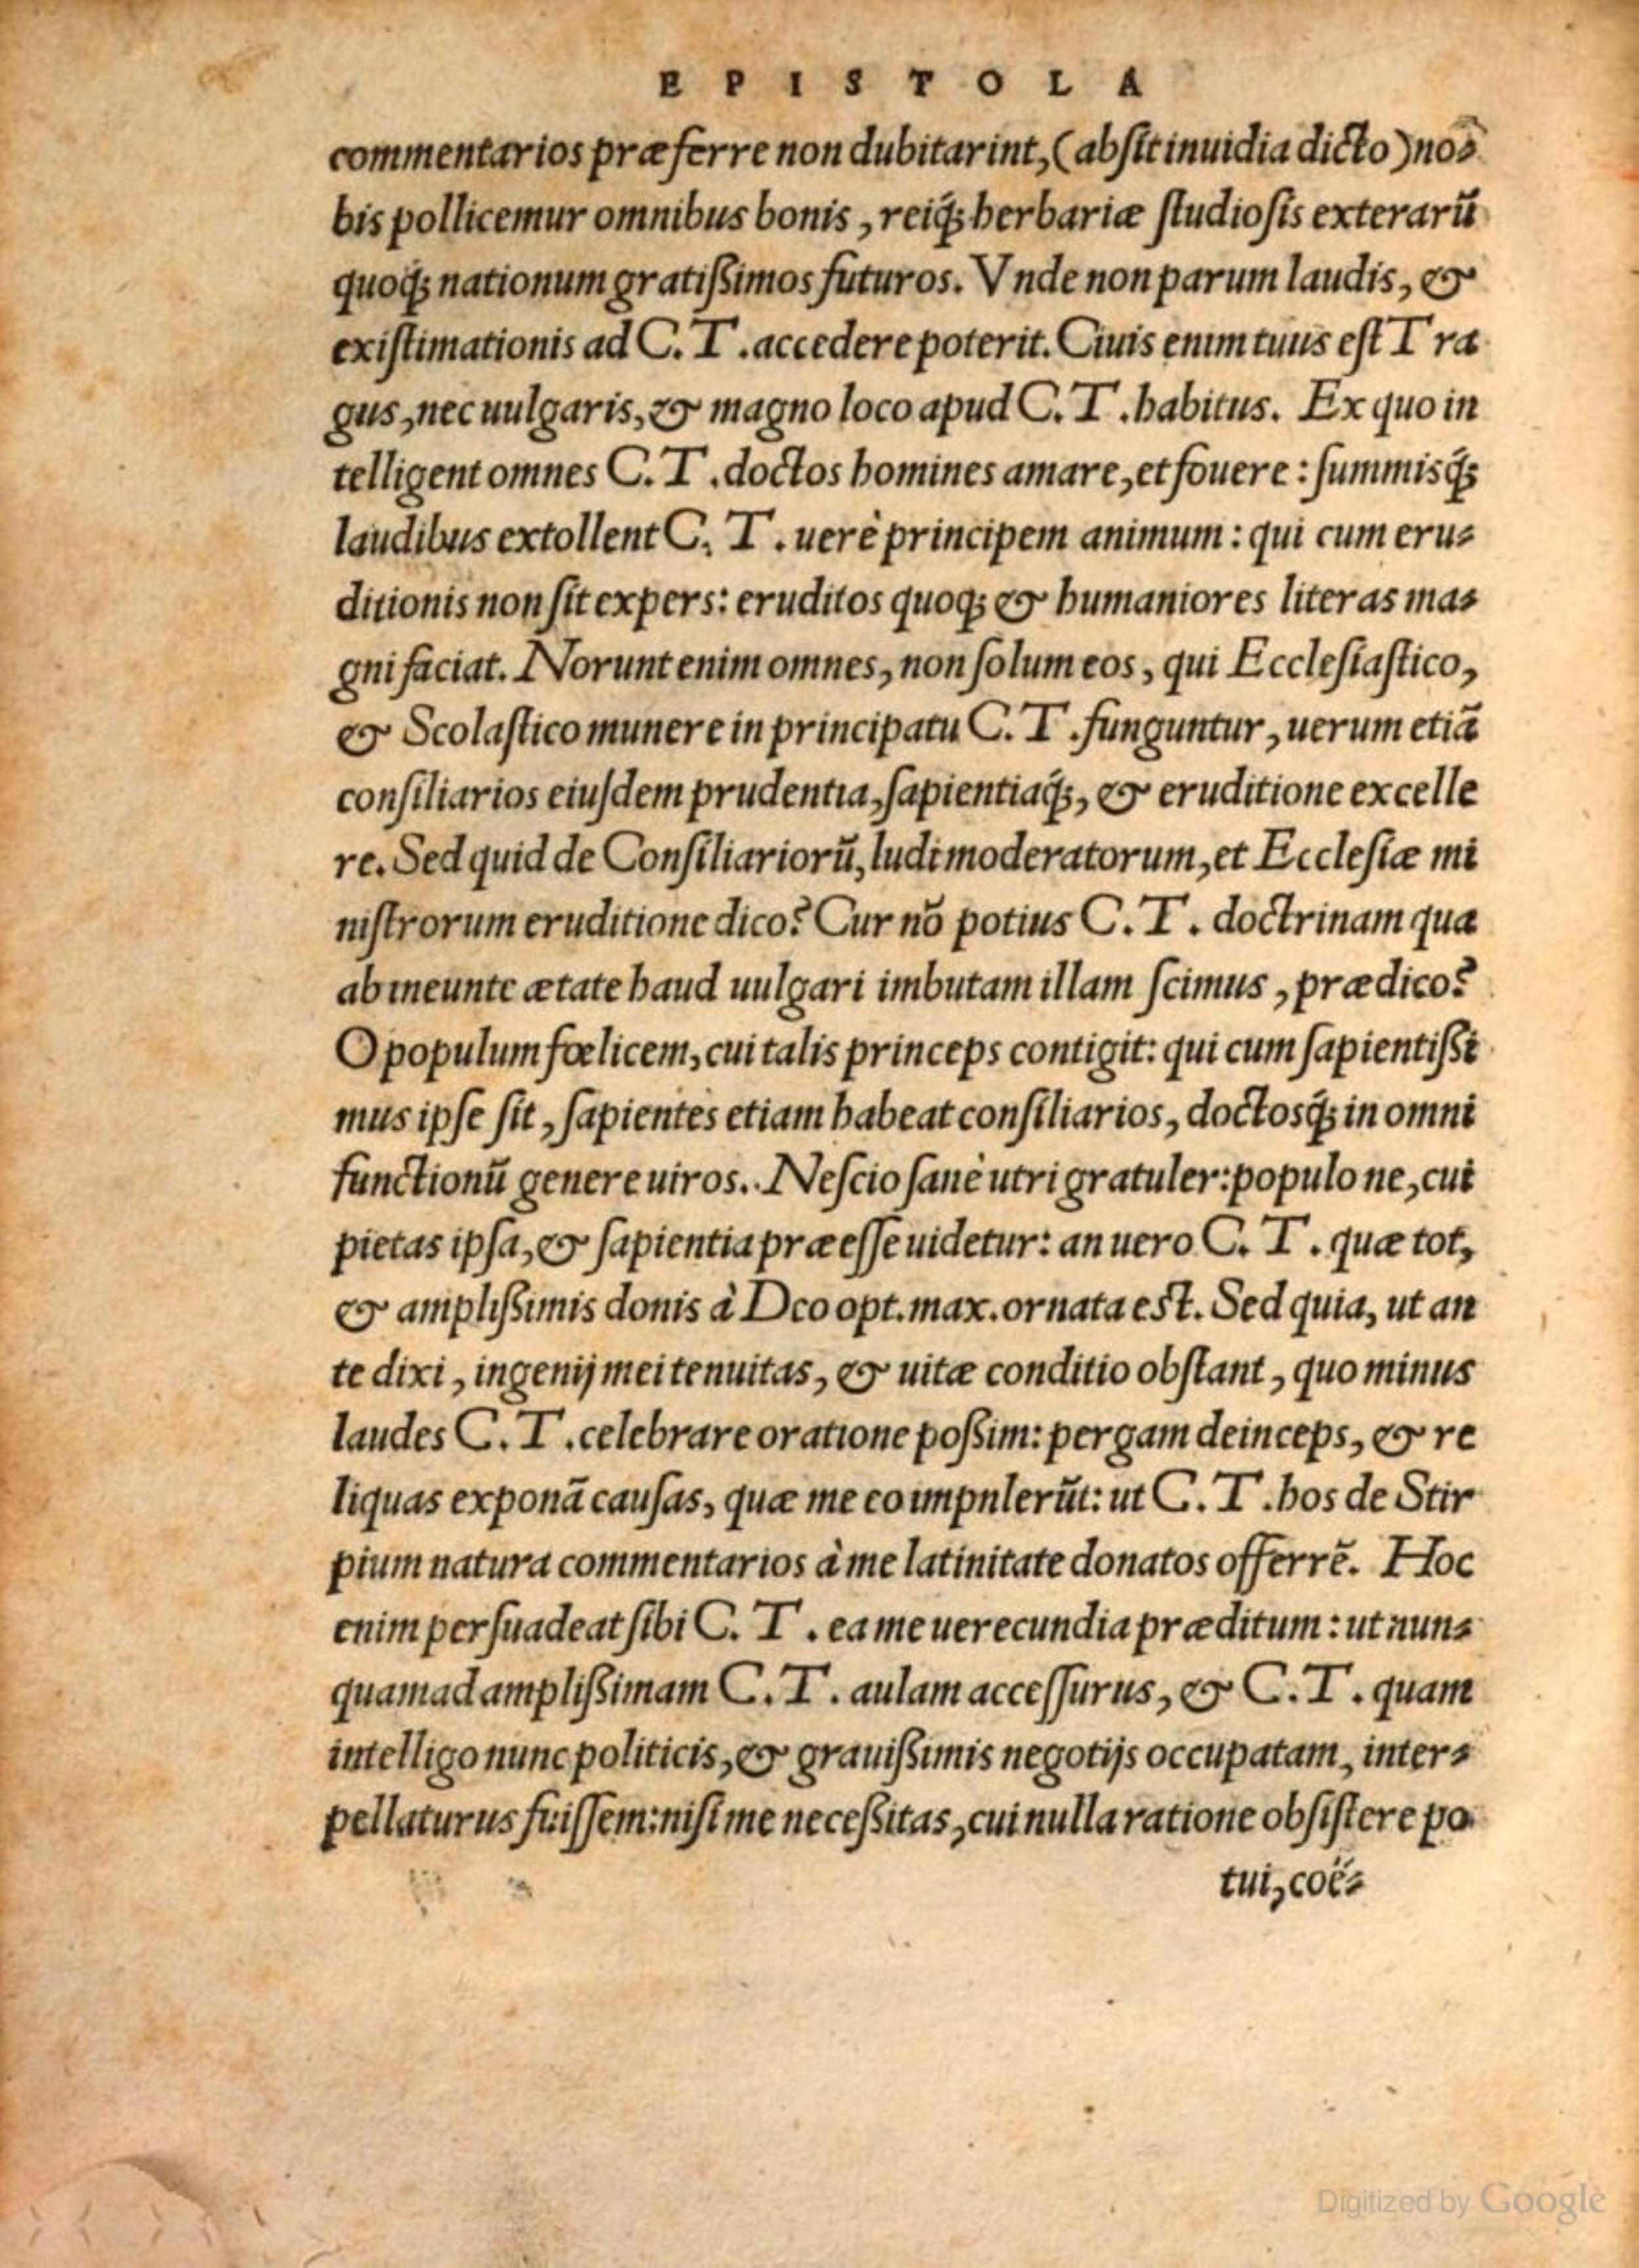 EPISTOLA
commentarios præferre non dubitarint, (absit inuidia dicto) no-
bis pollicemur omnibus bonis, reiq́; herbariæ studiosis exterarũ
quoq́; nationum gratißimos futuros. Vnde non parum laudis, &
existimationis ad C. T. accedere poterit. Ciuis enim tuus est Tra
gus, nec uulgaris, & magno loco apud C. T. habitus. Ex quo in
telligent omnes C. T. doctos homines amare, et fouere: summisq́;
laudibus extollent C. T. uerè principem animum: qui cum eru-
ditionis non sit expers: eruditos quoq; & humaniores literas ma-
gni faciat. Norunt enim omnes, non solum eos, qui Ecclesiastico,
& Scolastico munere in principatu C. T. funguntur, uerum etiã
consiliarios eiusdem prudentia, sapientiaq́;, & eruditione excelle
re. Sed quid de Consiliariorũ, ludi moderatorum, et Ecclesiæ mi
nistrorum eruditione dico? Cur nõ potius C. T. doctrinam qua
ab ineunte ætate haud uulgari imbutam illam scimus, prædico?
O populum fœlicem, cui talis princeps contigit: qui cum sapientißi
mus ipse sit, sapientes etiam habeat consiliarios, doctosq́; in omni
functionũ genere uiros. Nescio sanè utri gratuler: populo ne, cui
pietas ipsa, & sapientia præesse uidetur: an uero C. T. quæ tot,
& amplißimis donis à Deo opt. max. ornata est. Sed quia, ut an
te dixi, ingenij mei tenuitas, & uitæ conditio obstant, quo minus
laudes C. T. celebrare oratione poßim: pergam deinceps, & re
liquas exponã causas, quæ me eo impnlerũt: ut C. T. hos de Stir
pium natura commentarios à me latinitate donatos offerrẽ. Hoc
enim persuadeat sibi C. T. ea me uerecundia præditum: ut nun-
quam ad amplißimam C. T. aulam accessurus, & C. T. quam
intelligo nunc politicis, & grauißimis negotijs occupatam, inter-
pellaturus fuissem: nisi me neceßitas, cui nulla ratione obsistere po
tui, coë-
Digitized by Google